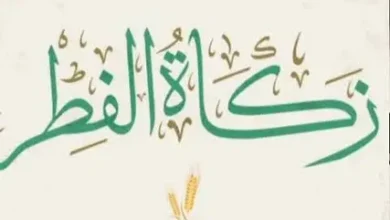 زَكَاةُ الفِطْرِ